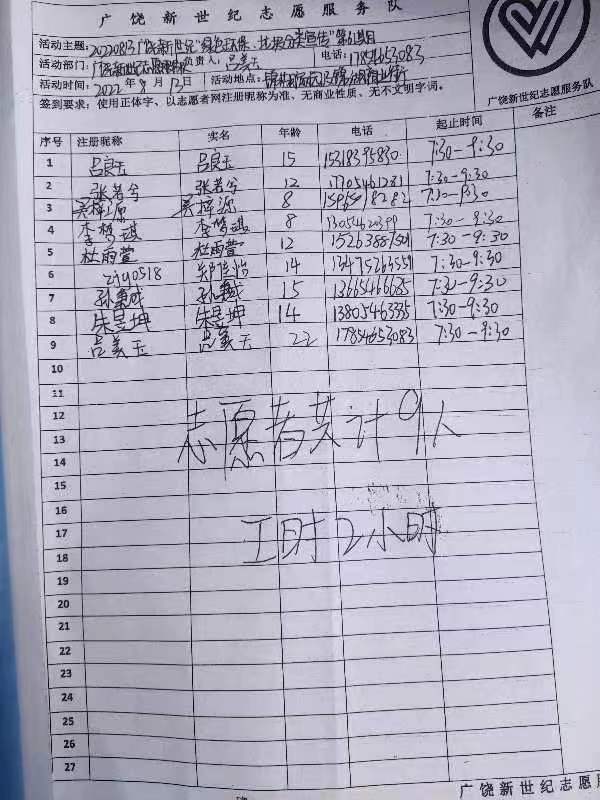 广饶新世纪志愿服务队
活动主题:20220813广饶新世纪"绿色环保、垃圾分类宣传"第 期
活动部门:广饶新世纪志愿服务队 负责人:吕美玉 电话:17854653083
活动时间:2022年8月13日 活动地点:
签到要求:使用正体字、以志愿者网注册昵称为准、无商业性质、无不文明字词。
广饶新世纪志愿服务队
序号 注册昵称 实名 年龄 电话 起止时间 备注
1 吕良玉 吕良玉 15 15318395830 7:30-9:30
2 张若兮 张若兮 12 17705461281 7:30-9:30
3 吴梓源 吴梓源 8 7:30-9:30
4 李梦琪 李梦琪 8 7:30-9:30
5 杜雨萱 杜雨萱 12 7:30-9:30
6 zjy0518 14 13475263559 7:30-9:30
7 15 13665466685 7:30-9:30
8 朱昱坤 朱昱坤 14 13805463335 7:30-9:30
9 吕美玉 吕美玉 22 17854653083 7:30-9:30
10
11
12
志愿者共计9人
13
14
15
16
17
工时2小时
18
19
20
21
22
23
24
25
26
27
广饶新世纪志愿服